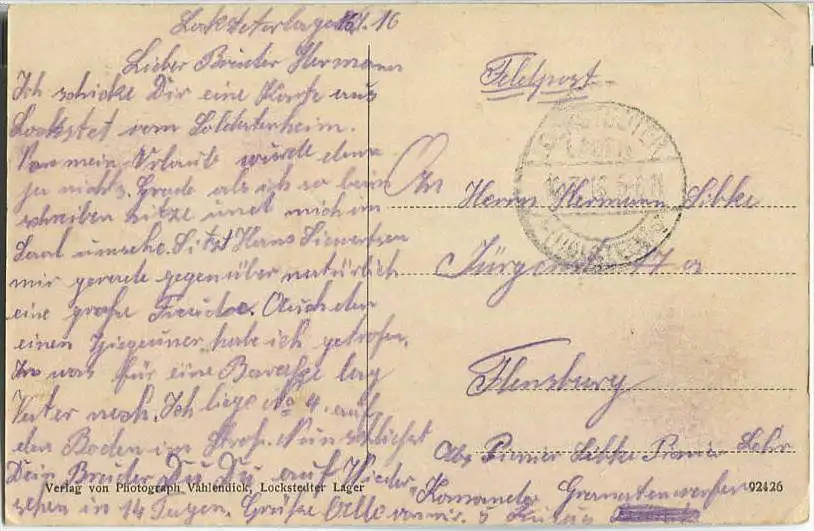 Lockstedterlager 16.7.16
Lieber Bruder Hermann
Ich schicke Dir eine Karte aus
Lockstet vom Soldatenheim.
mein Urlaub wurde denn
ja nichts. Grade als ich so beim
schreiben sitze und mich im
Saal umsehe. Sitzt Hans Siewertsen
mir gerade gegenüber natürlich
eine große Freude. Auch den
einen Ziegeuner habe ich getrofen.
In was für eine Baracke lag
Vater noch. Ich liege No 4. auf
den Boden im Stroh. Nun schließt
Dein Bruder Auf Wieder-
sehen in 14 Tagen. Grüße Alle von mir.
Feldpost
An
Herrn Hermann Sibke
77 a
Flensburg
Abs Pionier Sibke Pionier Lehr
Komando Granatenwerfer
5
LOCKSTEDTER
LAGER
(HOLSTEIN)
Verlag von Photograph Vahlendick, Lockstedter Lager
92426